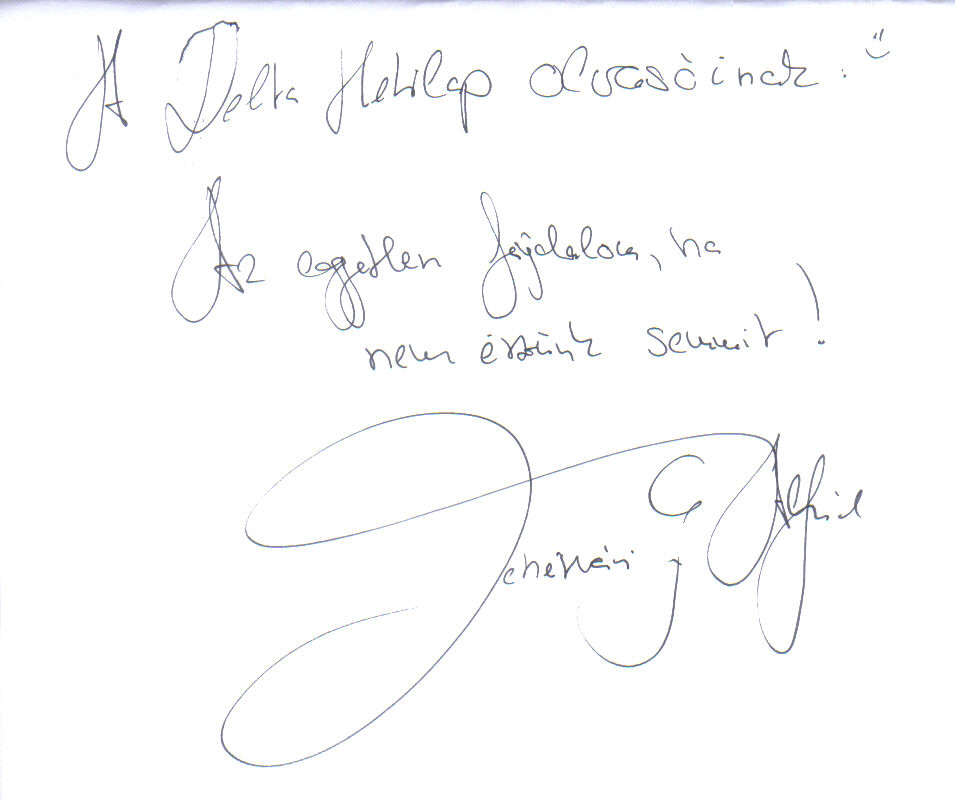 A Delta Hetilap olvasóinak :)
Az egyetlen fájdalom, ha
nem érzünk semmit!
G Alfréd